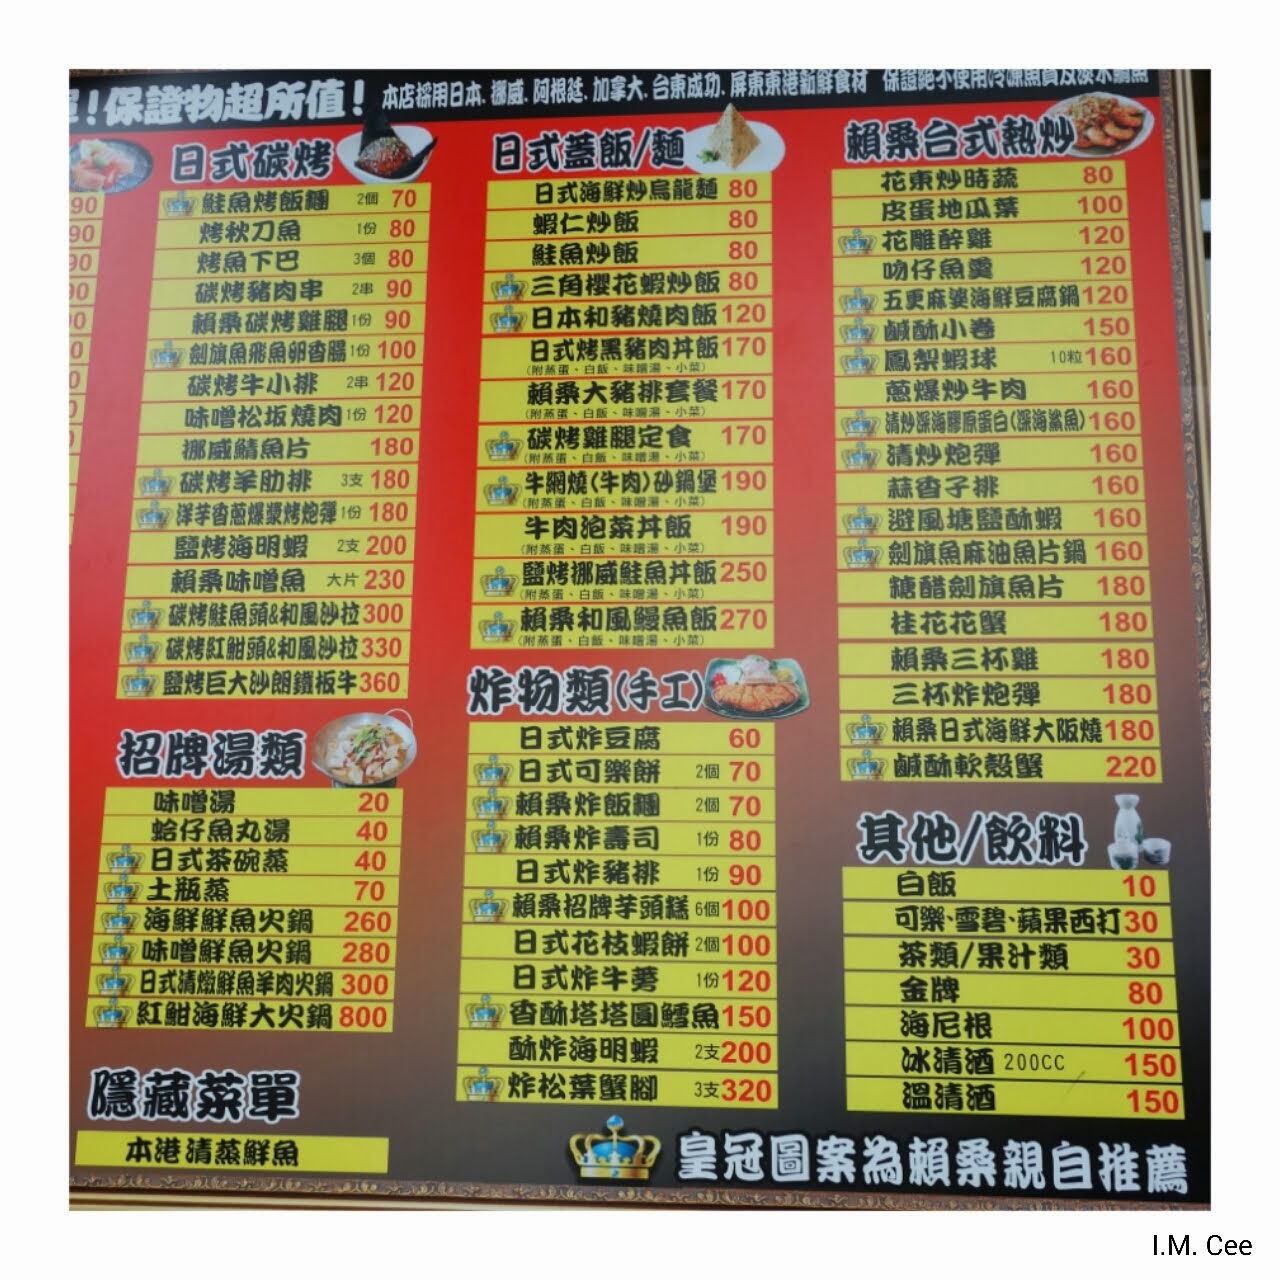 ！保證物超所值！ 本店採用日本、挪威、阿根廷、加拿大、台東成功、屏東東港新鮮食材 保證絕不使用冷凍魚貨及淡水鯛魚
90
90
90
90
90
0
0
0
日式碳烤
鮭魚烤飯糰 2個 70
烤秋刀魚 1份 80
烤魚下巴 3個 80
碳烤豬肉串 2串 90
賴桑碳烤雞腿 1份 90
劍旗魚飛魚卵香腸 1份 100
碳烤牛小排 2串 120
味噌松坂燒肉 1份 120
挪威鯖魚片 180
碳烤羊肋排 3支 180
洋芋香蔥爆漿烤炮彈 1份 180
鹽烤海明蝦 2支 200
賴桑味噌魚 大片 230
碳烤鮭魚頭&和風沙拉 300
碳烤紅魽頭&和風沙拉 330
鹽烤巨大沙朗鐵板牛 360
招牌湯類
味噌湯 20
蛤仔魚丸湯 40
日式茶碗蒸 40
土瓶蒸 70
海鮮鮮魚火鍋 260
味噌鮮魚火鍋 280
日式清燉鮮魚羊肉火鍋 300
紅魽海鮮大火鍋 800
隱藏菜單
本港清蒸鮮魚
日式蓋飯/麵
日式海鮮炒烏龍麵 80
蝦仁炒飯 80
鮭魚炒飯 80
三角櫻花蝦炒飯 80
日本和豬燒肉飯 120
日式烤黑豬肉丼飯 170
(附蒸蛋、白飯、味噌湯、小菜)
賴桑大豬排套餐 170
(附蒸蛋、白飯、味噌湯、小菜)
碳烤雞腿定食 170
(附蒸蛋、白飯、味噌湯、小菜)
牛網燒(牛肉)砂鍋堡 190
(附蒸蛋、白飯、味噌湯、小菜)
牛肉泡菜丼飯 190
(附蒸蛋、白飯、味噌湯、小菜)
鹽烤挪威鮭魚丼飯 250
(附蒸蛋、白飯、味噌湯、小菜)
賴桑和風鰻魚飯 270
(附蒸蛋、白飯、味噌湯、小菜)
炸物類(手工)
日式炸豆腐 60
日式可樂餅 2個 70
賴桑炸飯糰 2個 70
賴桑炸壽司 1份 80
日式炸豬排 1份 90
賴桑招牌芋頭糕 6個 100
日式花枝蝦餅 2個 100
日式炸牛蒡 1份 120
香酥塔塔圓鱈魚 150
酥炸海明蝦 2支 200
炸松葉蟹腳 3支 320
賴桑台式熱炒
花東炒時蔬 80
皮蛋地瓜葉 100
花雕醉雞 120
吻仔魚羹 120
五更麻婆海鮮豆腐鍋 120
鹹酥小卷 150
鳳梨蝦球 10粒 160
蔥爆炒牛肉 160
清炒深海膠原蛋白(深海鯊魚) 160
清炒炮彈 160
蒜香子排 160
避風塘鹽酥蝦 160
劍旗魚麻油魚片鍋 160
糖醋劍旗魚片 180
桂花花蟹 180
賴桑三杯雞 180
三杯炸炮彈 180
賴桑日式海鮮大阪燒 180
鹹酥軟殼蟹 220
其他/飲料
白飯 10
可樂、雪碧、蘋果西打 30
茶類/果汁類 30
金牌 80
海尼根 100
冰清酒 200CC 150
溫清酒 150
皇冠圖案為賴桑親自推薦
I.M. Cee